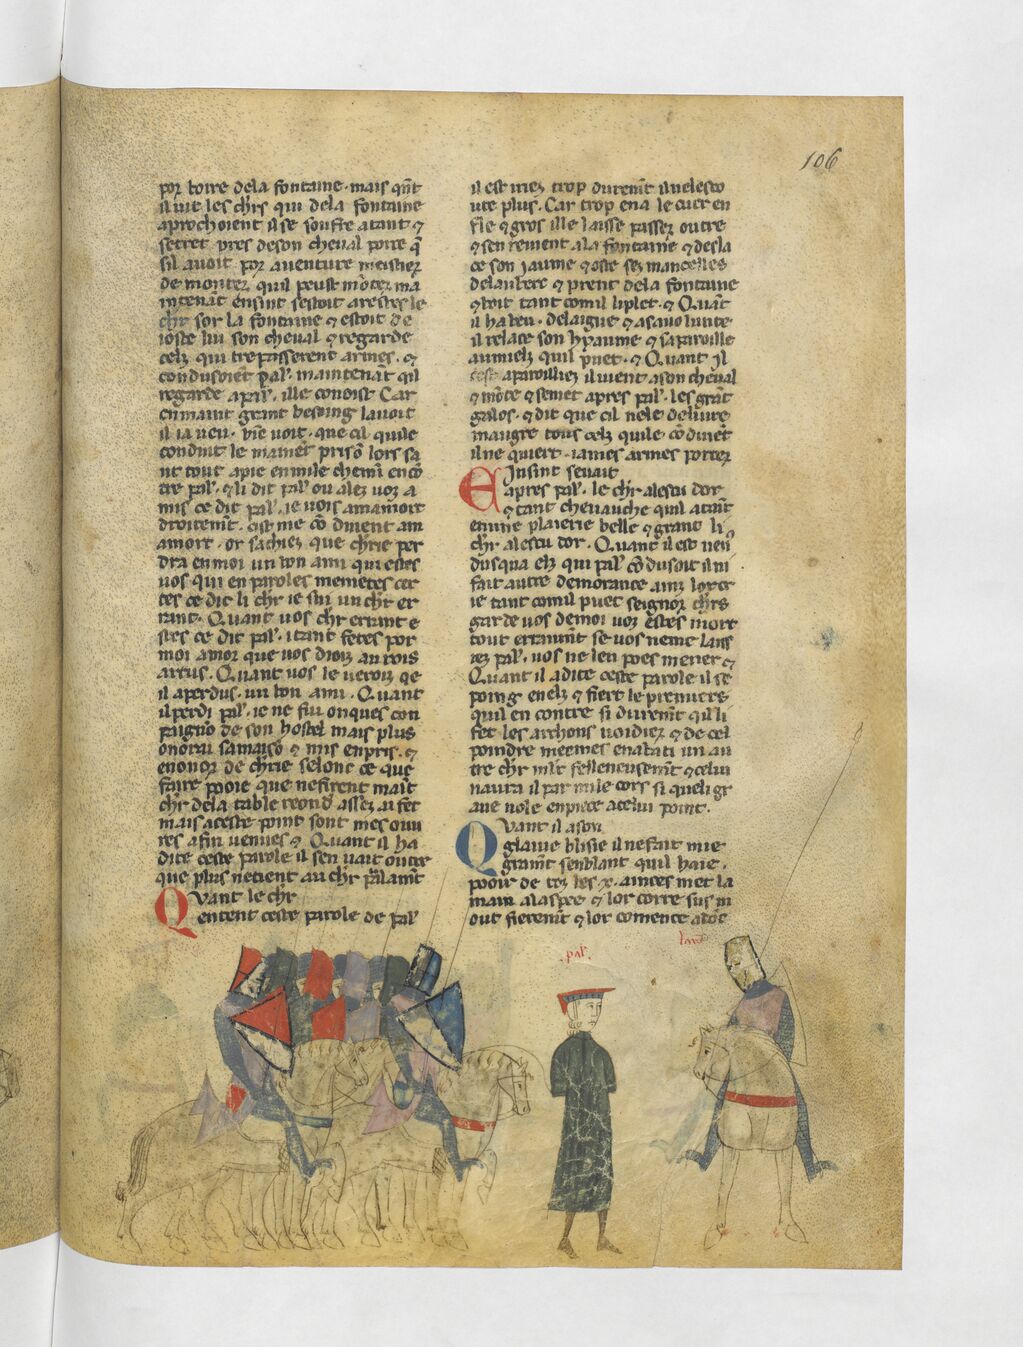 106
por boire dela fontaine. mais qñt
il uit les chrs qui dela fontaine
aprochoient il se souffre atant ⁊
secret pres deson cheval porce q̃
sil auoit por auenture mestier
de monter, quil peust mõter ma
intenãt ensint sestoit arestes le
chr sor la fontaine ⁊ estoit de
ioste lui son cheval ⁊ regarde
celz qui trepasserent armes. ⁊
condusoiẽt pal'. maintenãt qil
regarde apal'. ille conoist Car
enmaint grant besoing lauoit
il ia veu. bn̄e uoit. que cil quile
conduit le mainẽt prisõ lors sa
ut tout apie enmile chemĩ encõ
tre pal'. ⁊ li dit pal' ou alez uoz a
mis ce dit pal'. ie uois amamort
droitemẽt. cist me cõduient am
amort. or sachiez que chr̃ie per
dra enmoi un bon ami qui estes
uos qui en paroles memetes cer
tes ce dit li chr ie sui un chr er
rant. Quant uos chr errant e
stes ce dit pal'. itant fetes por
moi amor que uos dioiz au rois
artus. Quant uos le ueroiz qe
il aperdus. un bon ami. Quant
il perdi pal'. ie ne fui onques con
paigno de son hostel mais plus
onorai samaisõ ⁊ mis enpris. ⁊
enonor de chr̃ie selonc ce que
faire pooie que nefirent maĩt
chr dela table reond assez ai fet
mais aceste point sont mes ouu
res afin uenues ⁊ Quant il ha
dite ceste parole il sen uait outre
que plus netient au chr parlamẽt
Quant le chr
entent ceste parole de pal'
il est iriez trop duremẽt
ute plus. Car trop ena le cuer en
fle ⁊ gros ille laisse passer outre
⁊ sen reuient ala fontaine ⁊ desla
ce son iaume ⁊ oste sez
⁊ prent dela fontaine
⁊ boit tant comil liplet. ⁊ Quãt
il ha beu. delaigue ⁊ asauolunte.
il relace son hyaume ⁊ saparoille
aumielz quil puet. ⁊ Quant Il
cest aparoilliez il uient ason cheual
⁊ mõte ⁊ semet apres pal'. les grãt
galos. ⁊ dit que cil nele deliure
maugre tous celz quile cõduiẽt
il ne quiert iames armes porter
Einsint seuait
apres pal'. le chr alescu dor
⁊ tant cheuauche quil ataĩt
enune plaierie belle ⁊ grant li
chr alescu dor. Quant il est ueñ
dusqua elz qui pal' cõdusoit il ni
fait autre demorance ainz lorcr
ie tant comil puet seignor chr̃s
garde uos demoi uoz estes mort
tout erraumt se uos neme lais
iez pal'. uos ne len poes mener ⁊
Quant il adite ceste parole il se
poing enelz ⁊ fiert le premiers
quil en contre si duremẽt qil li
fet les archons uoidier ⁊ de cel
poindre meemes enabati un au
tre chr mlt felleneusemẽt ⁊ celui
naura il par mile cors si queli gr
aue nole enpiece acelui point.
Quant il ason
glaiue blisie il nefait mie
gramt senblant quil haie.
pooir de toz les .x. ainces met la
main alaspee ⁊ lor corre sus m
out fieremt ⁊ lor comence adõe
.pal'.